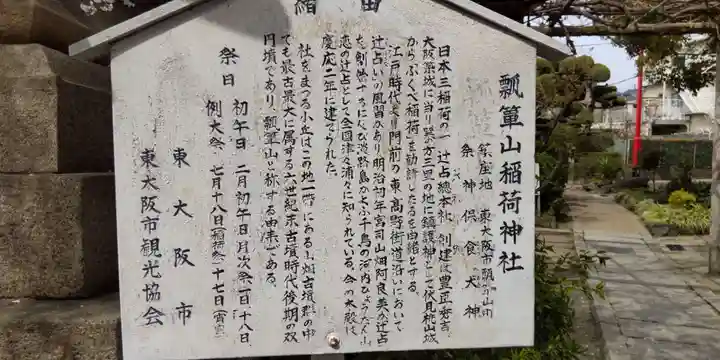 由緒
瓢簞山稲荷神社
鎮座地 東大阪市瓢簞山町
祭神 保食大神
日本三稲荷の一 辻占総本社 創建は豊臣秀吉、
大阪築城に当り巽の方三里の地に鎮護神として伏見桃山城
からふくべ稲荷を勧請したるを由緒とする。
江戸時代より門前の東高野街道沿いにおいて
辻占いの風習があり明治初年宮司山畑阿良美が辻占
を創始するに及び淡路島かよふ千鳥の河内ひょうたん山
恋の辻占として全国津々浦々に知られている。今の本殿は
慶応二年に建てられた。
社をまつる小丘はこの地一帯にある山畑古墳群の中
でも最古最大に属する六世紀末古墳時代後期の双
円墳であり、瓢簞山と称する由来である。
祭日 初午日 二月初午日 月次祭一日、十八日
例大祭 七月十八日(稲荷祭)十七日(宵宮)
東大阪市
東大阪市観光協会